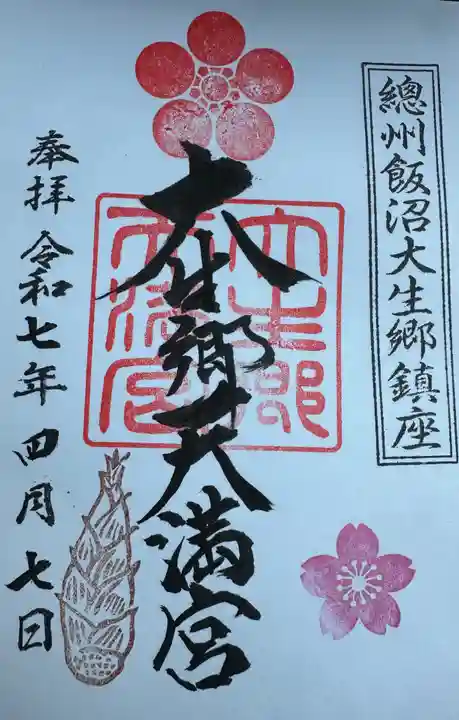 總州飯沼大生郷鎮座
大生郷天満宮
大生郷天満宮
奉拝 令和七年四月七日